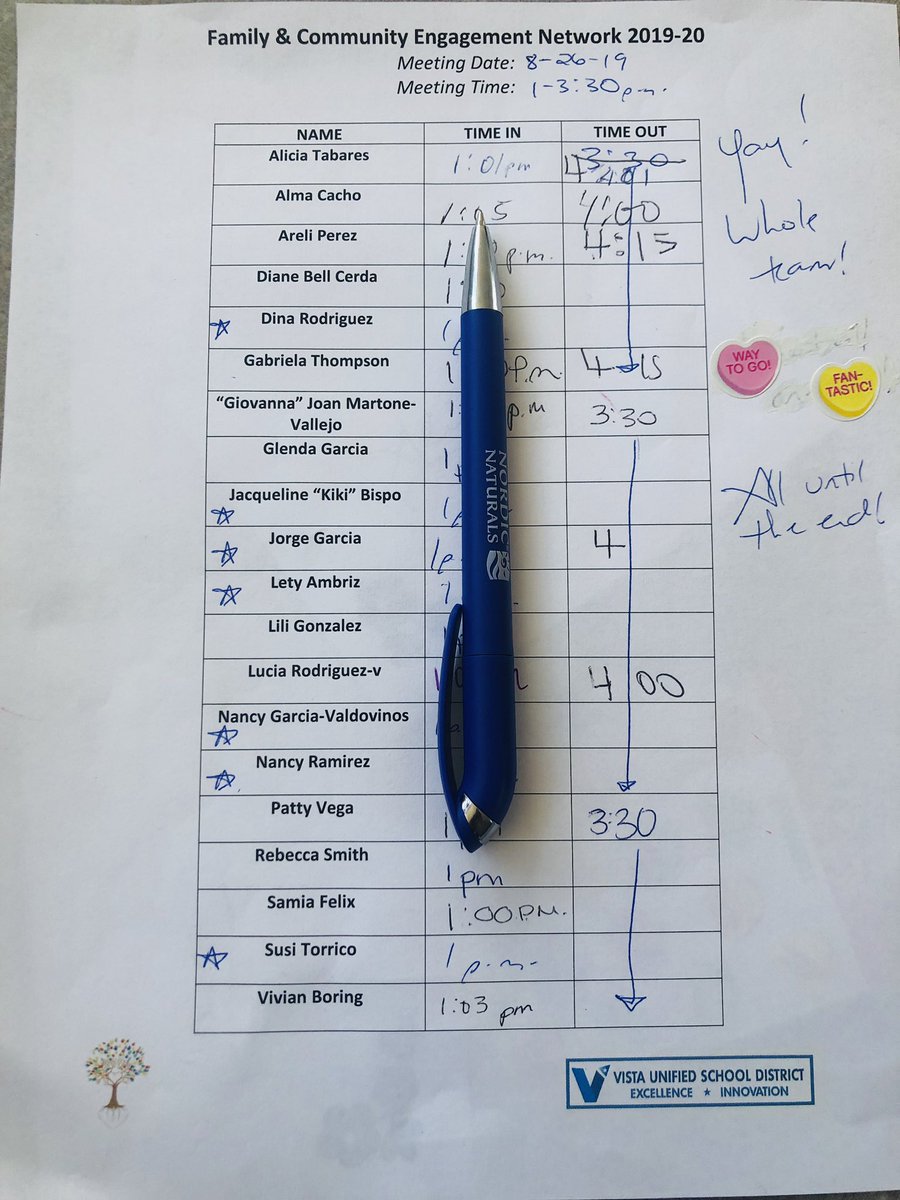 Family & Community Engagement Network 2019-20
Meeting Date: 8-26-19
Meeting Time: 1-3:30 p.m.
NAME TIME IN TIME OUT
Alicia Tabares 1:01pm 3:30
Alma Cacho 1:05 4:00
Areli Perez p.m. 4:15
Diane Bell Cerda
Dina Rodriguez
Gabriela Thompson P.m. 4 15
"Giovanna" Joan Martone-
Vallejo p.m 3:30
Glenda Garcia
Jacqueline "Kiki" Bispo
Jorge Garcia 4
Lety Ambriz
Lili Gonzalez
Lucia Rodriguez-v 4 00
Nancy Garcia-Valdovinos
Nancy Ramirez
Patty Vega 3:30
Rebecca Smith 1 pm
Samia Felix 1:00 P.M.
Susi Torrico 1 p.m.
Vivian Boring 1:03 pm
Yay!
Whole
team!
WAY
TO GO!
FAN-
TASTIC!
All until
the end!
NORDIC
NATURALS
VISTA UNIFIED SCHOOL DISTRICT
EXCELLENCE ★ INNOVATION